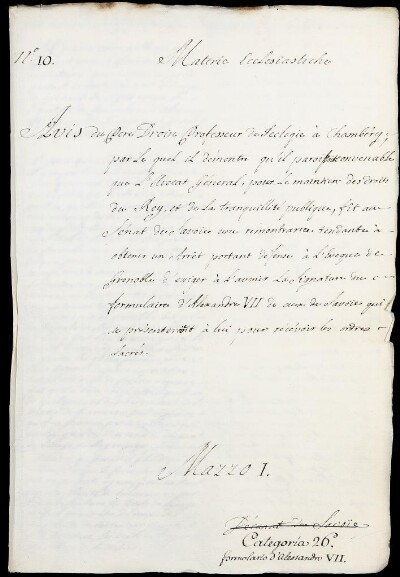 N.º 10.
Materie Ecclesiastiche
Avis du Pere Droin Professeur de Teologie à Chambery,
par le quel il démontre qu'il paroit convenable
que l'Avocat Général, pour le maintien des droits
du Roy, et de la tranquillité publique, fit au
Senat de Savoie une remontrance tendante à
obtenir un Arrêt portant défense à l'Eveque de
Grenoble d'exiger à l'avenir la signature du
formulaire d'Alexandre VII de ceux de Savoie qui
se présenteroit à lui pour recevoir les ordres
sacrés.
Mazzo I.
Décanat de Savoie
Categoria 26.ª
formolario d'Alessandro VII.